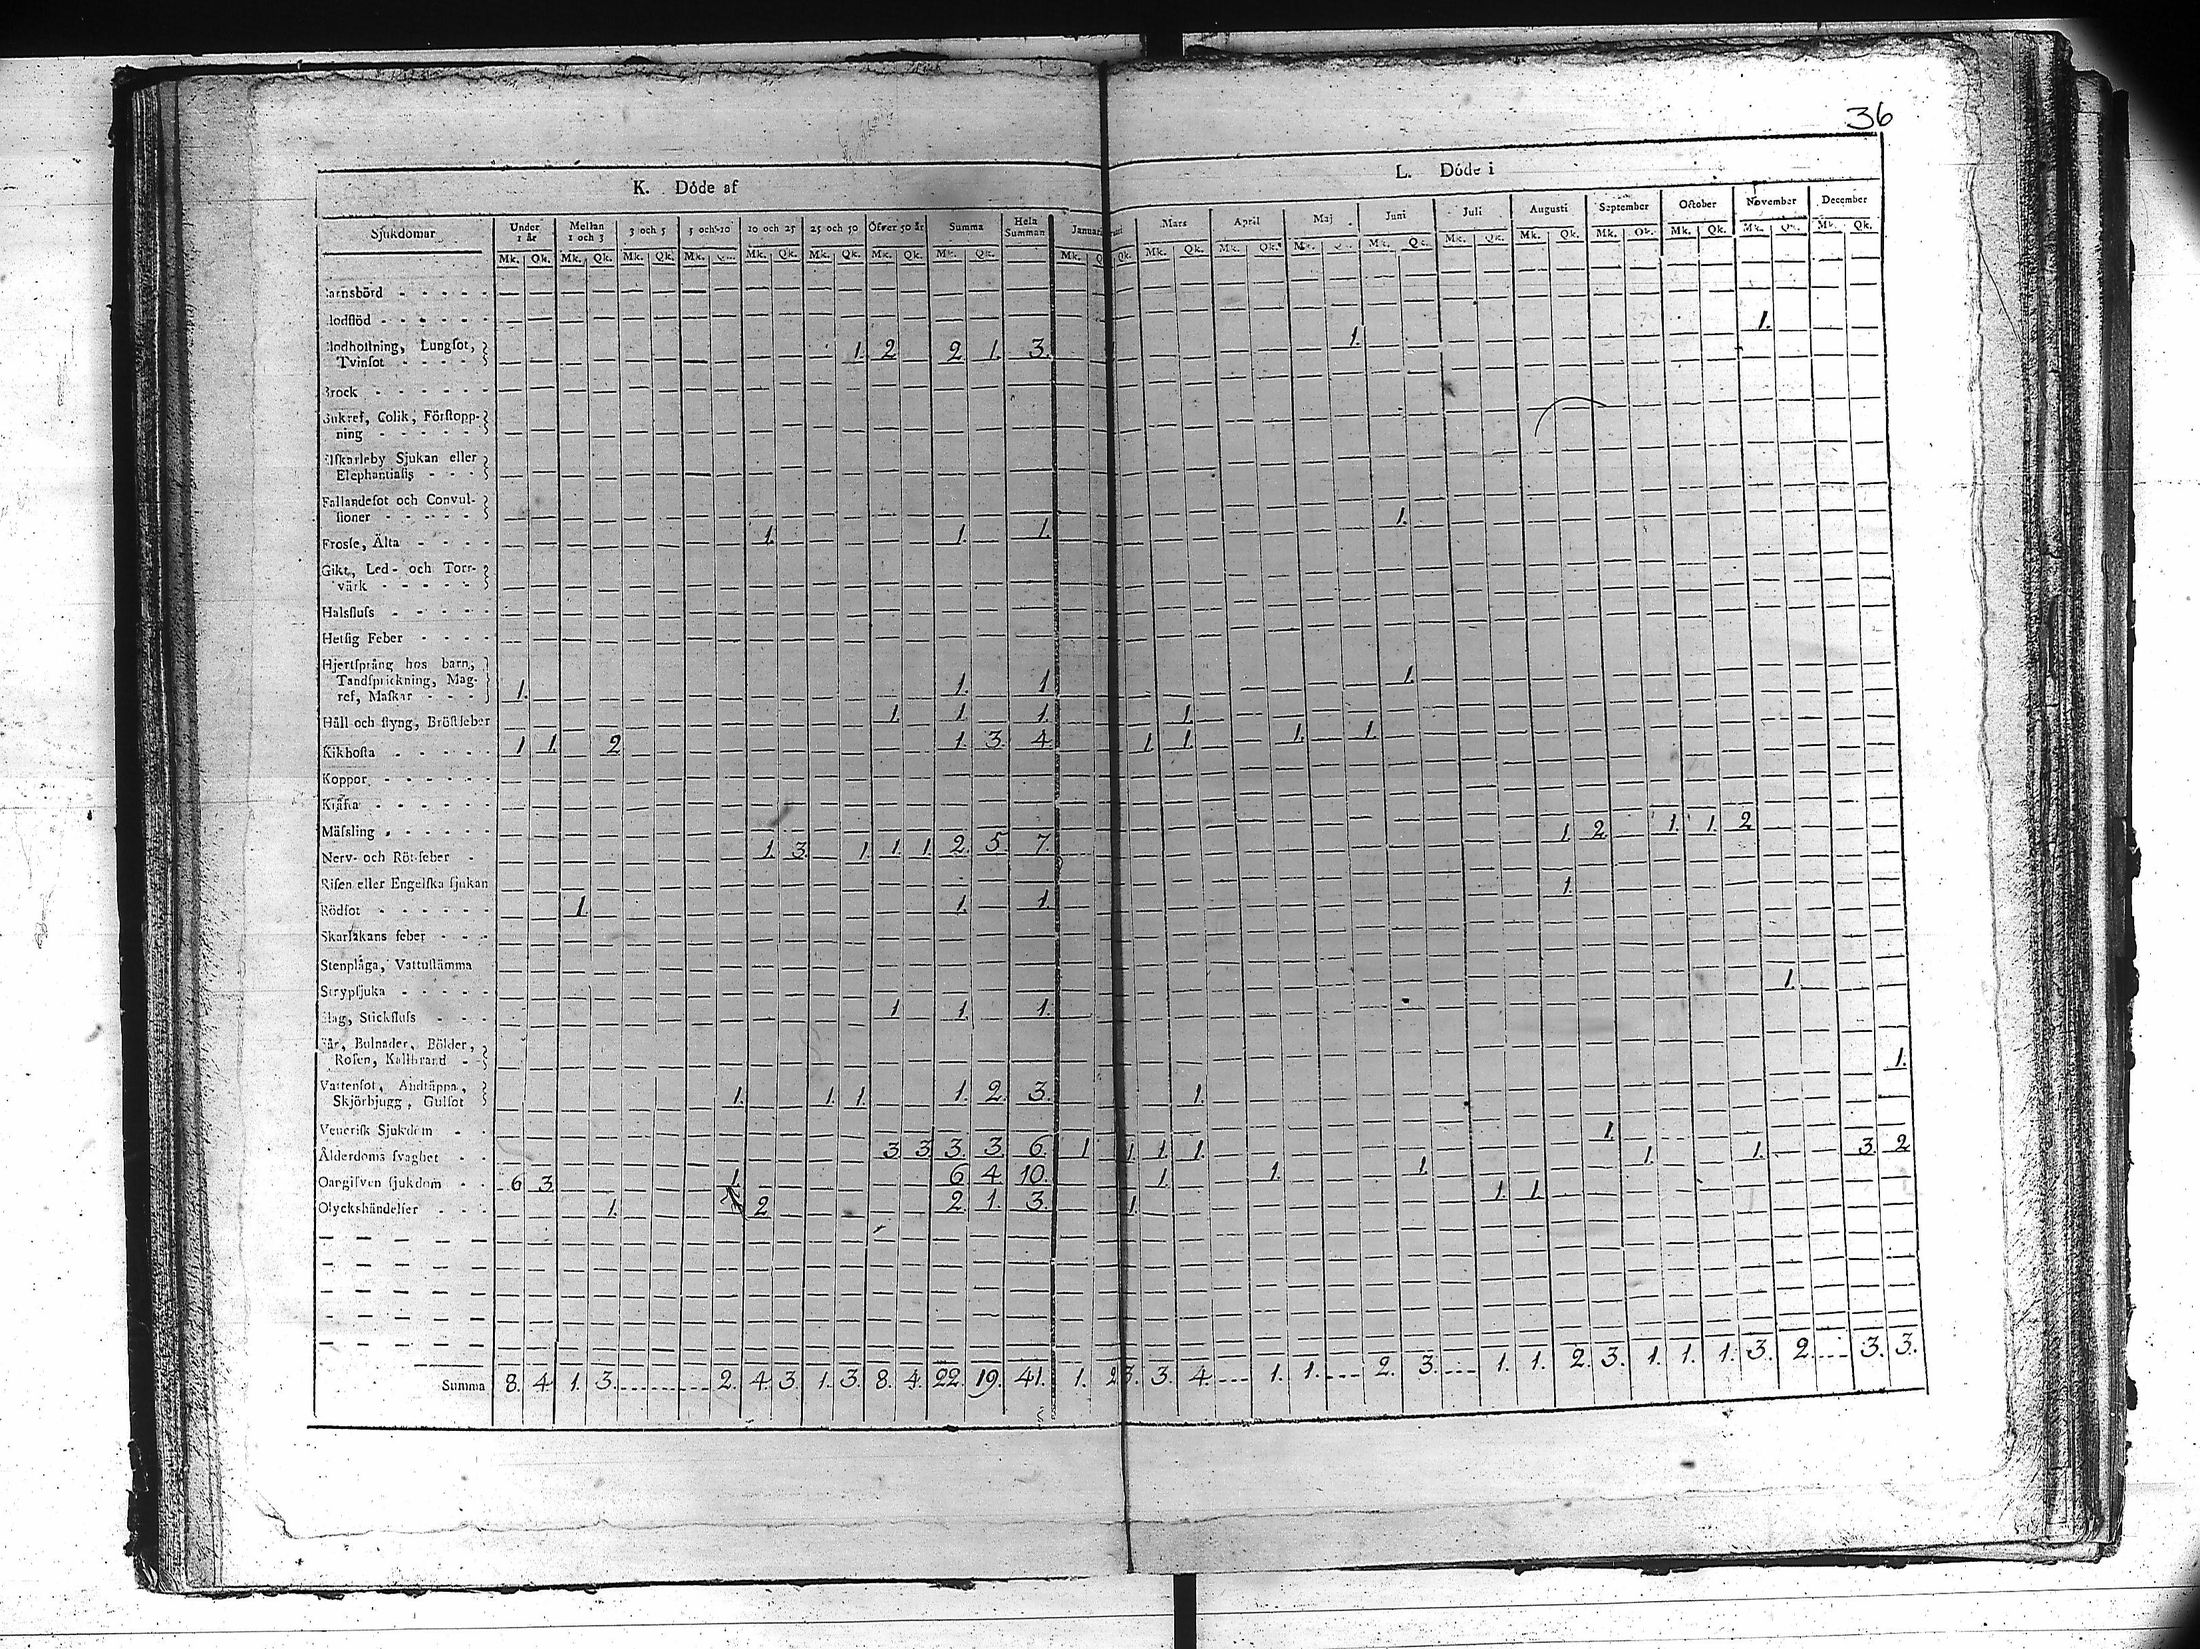 36
K. Döde af
L. Döde i
Sjukdomar Under 1 år Mellan 1 och 3 3 och 5 5 och 10 10 och 25 25 och 50 Öfver 50 år Summa Hela Summan Mars April Maj Juni Juli Augusti September October November December
Mk. Qk. Mk. Qk. Mk. Qk. Mk. Mk. Qk. Mk. Qk. Mk. Qk. Mk. Qk. Mk. Qk. Mk. Qk. Mk. Qk. Mk. Mk. Qk. Mk. Qk. Mk. Qk. Mk. Qk. Mk. Qk. Mk. Mk. Qk.
arnsbörd - - - - -
lodflöd - - - - - -
Lungsot,
Tvinsot - - - - 1. 2 2 1. 3. 1. 1.
rock - - - - -
Colik, Förstopp-
ning - - - - -
Elfkarleby Sjukan eller
Elephantiasis - - -
Fallandesot och Convul-
sioner - - - - -
Frossa, Älta - - - - 1. 1. 1. 1.
Gikt, Led- och Torr-
värk - - - - -
Halsfluss - - - - -
Hetsig Feber - - - -
Hjertsprång hos barn,
Tandsprickning, Mag-
ref, Maskar - - - 1. 1. 1 1.
Håll och styng, Bröstfeber 1. 1. 1. 1.
Kikhosta - - - - - 1 1. 2 1. 3. 4. 1. 1. 1. 1.
Koppor - - - - - -
Kräfta - - - - - -
Mässling - - - - - -
Nerv- och Rötfeber - 1. 3. 1. 1. 1. 2. 5. 7. 1. 2. 1. 1. 2
Risen eller Engelska sjukan
Rödsot - - - - - 1. 1. 1. 1.
Skarlakans feber - - -
Stenplåga, Vattustämma
Strypsjuka - - - - -
Slag, Stickfluss - - - 1 1. 1. 1.
Sår, Bulnader, Bölder,
Rosen, Kallbrand - -
Vattensot, Andtäppa,
Skjörbjugg, Gulsot 1. 1. 1. 1. 2. 3. 1. 1.
Venerisk Sjukdom - -
Ålderdoms svaghet - - 3 3. 3. 3. 6. 1 1. 1. 1. 1. 1. 1. 3. 2
Oangifven sjukdom - - 6 3. 1. 6 4. 10. 1. 1. 1. 1. 1.
Olyckshändelser - - - 1. 2 2. 1. 3. 1.
Summa 8. 4. 1. 3. 2. 4. 3. 1. 3. 8. 4. 22. 19. 41. 1. 3. 4. 1. 1. 2. 3. 1. 1. 2. 3. 1. 1. 1. 3. 2. 3. 3.